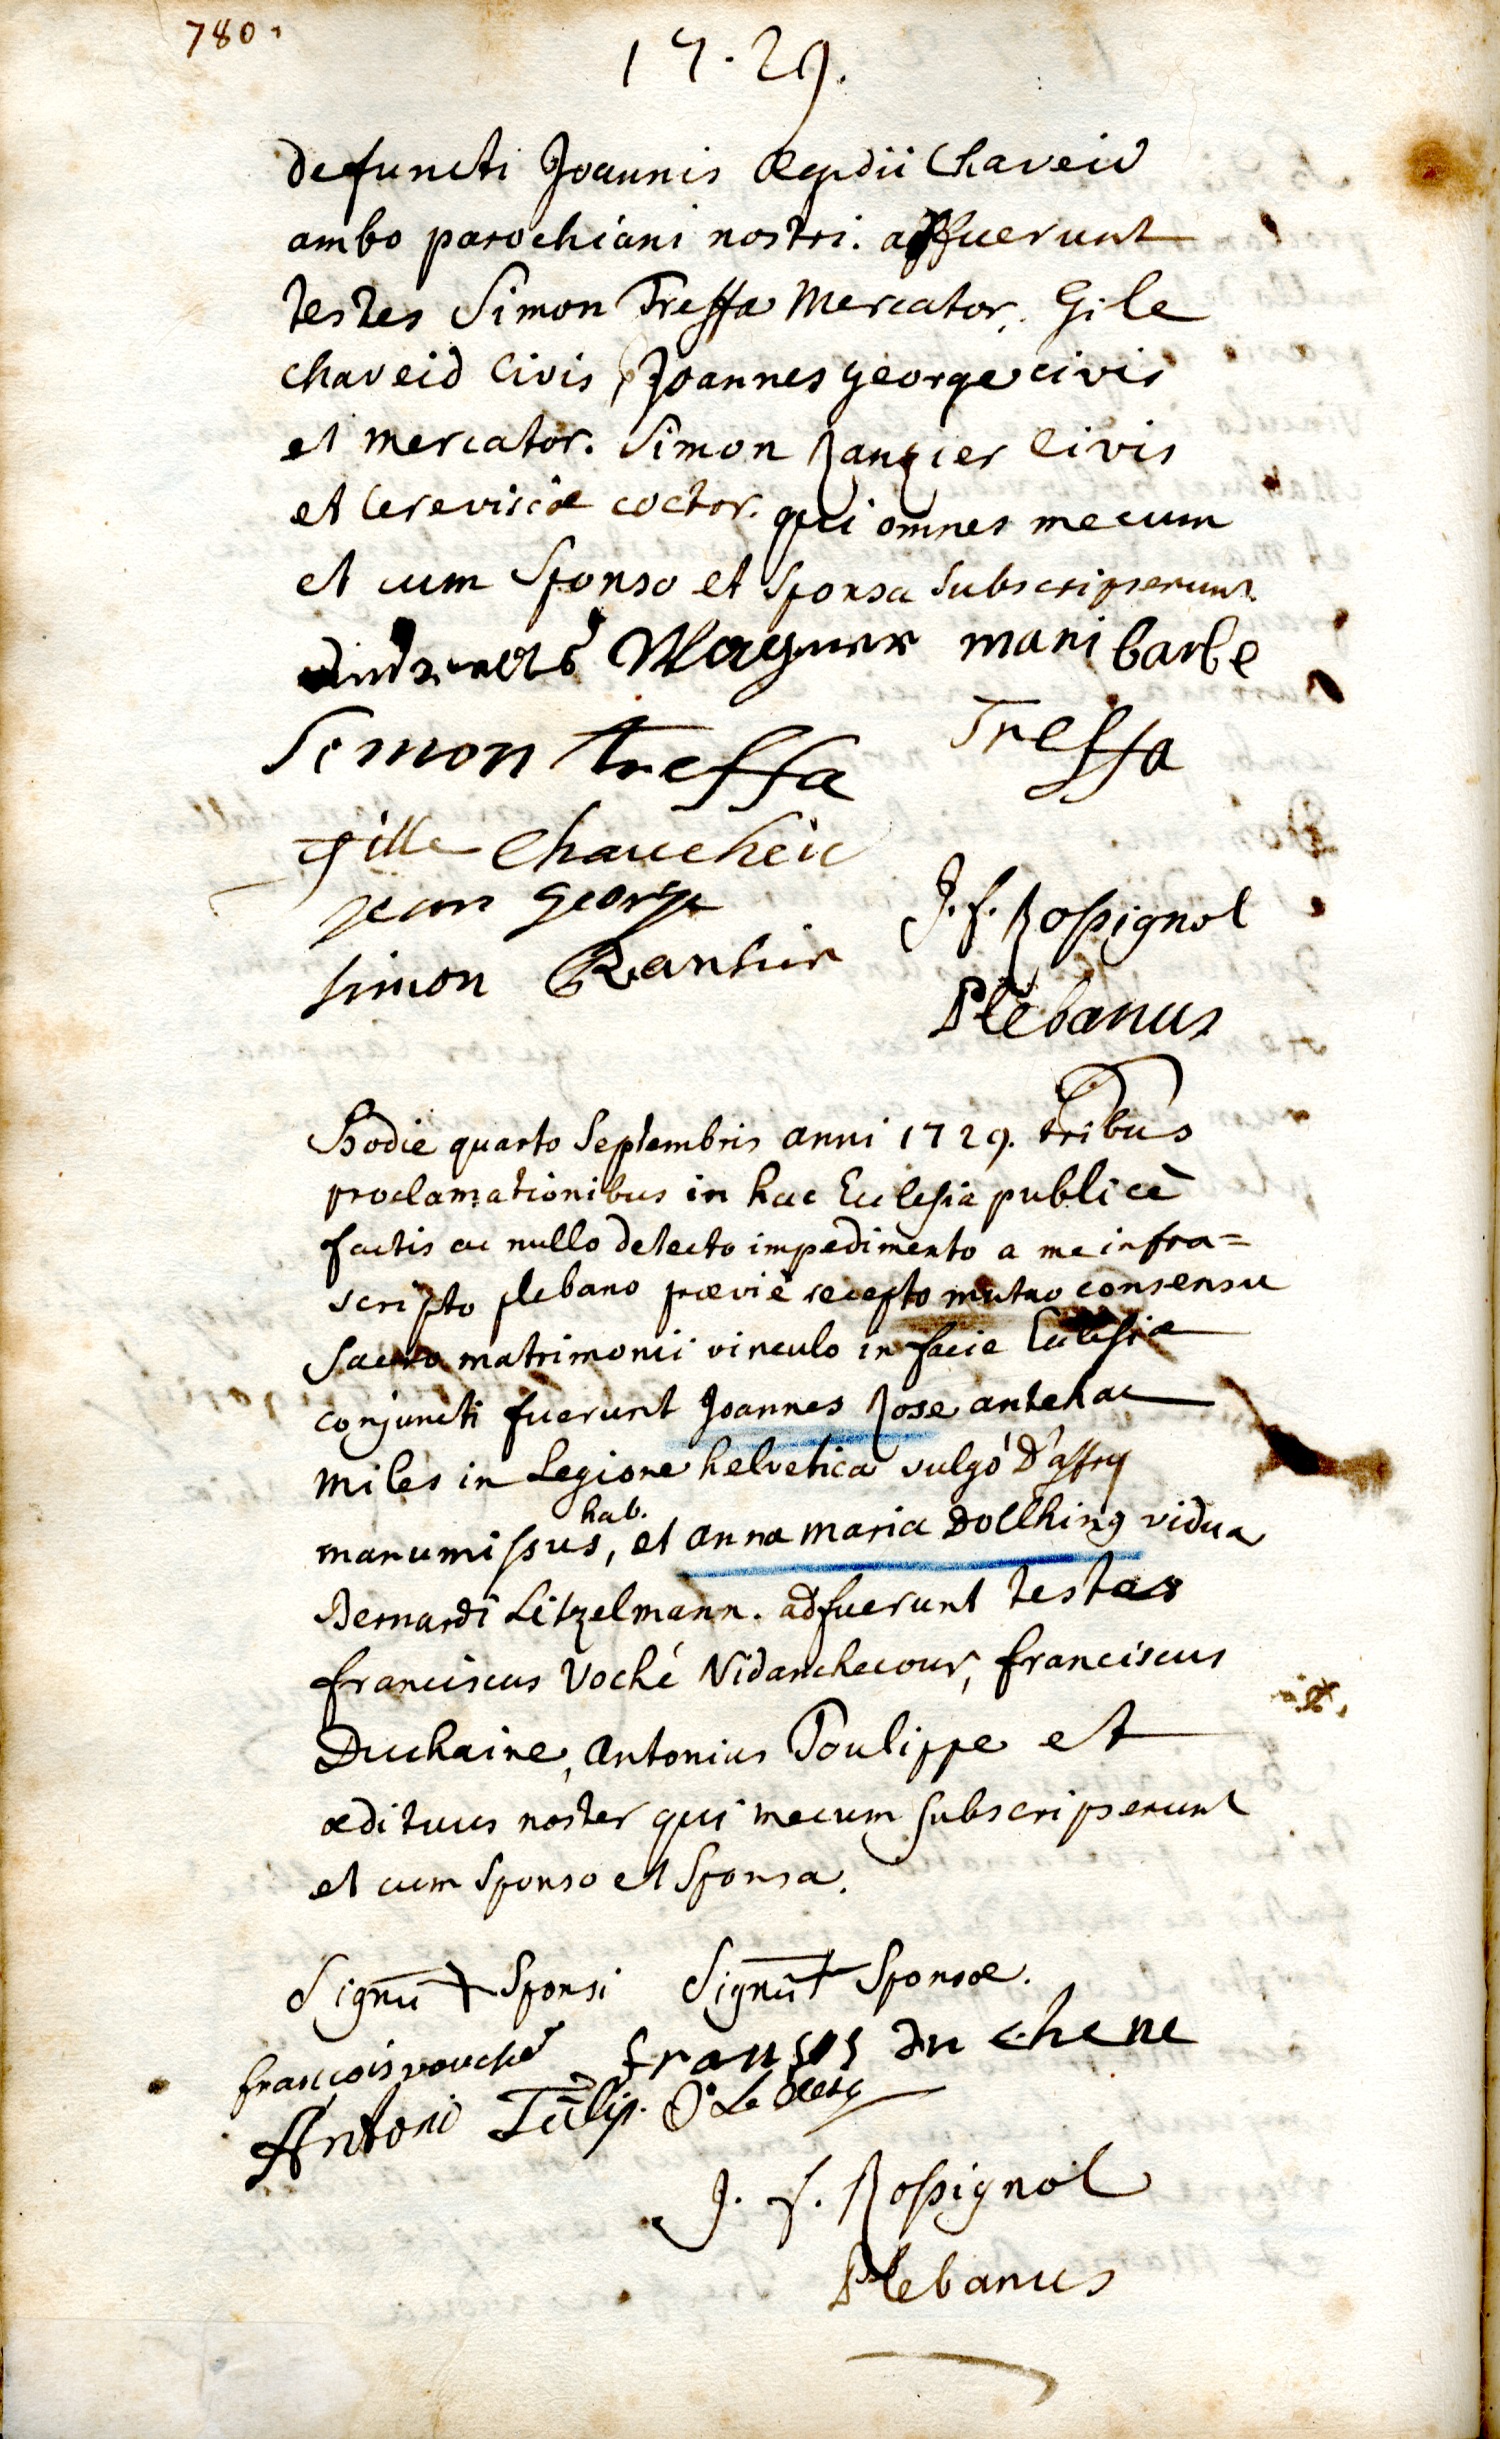 780.
17.29.
defuncti Joannis Ægidii Chaveid
ambo parochiani nostri. adfuerunt
testes Simon Treffa Mercator, Gile
chaveid Civis, Joannes george civis
et mercator. Simon Ranzier Civis
et Cerevisiæ coctor. qui omnes mecum
et cum Sponso et Sponsa Subscripserunt
Wagner mari barbe
Simon treffa Treffa
gille
jean george J. f. Rossignol
simon Plebanus
Hodie quarto Septembris anni 1729. tribus
proclamationibus in hac Ecclesia publicè
factis ac nullo detecto impedimento a me infra=
scripto plebano prævie recepto mutuo consensu
Sacro matrimonii vinculo in facie Ecclesiæ
conjuncti fuerunt Joannes Rose antehac
miles in Legione helvetica vulgò D'affry
hab.
manumissus, et anna maria Dollhing vidua
Bernardi Litzelmann. adfuerunt testes
franciscus Voché Nidanchecour, franciscus
Duchaine, Antonius Toulippe et
ædituus noster qui mecum subscripserunt
et cum Sponso et Sponsa.
Signū + Sponsi Signū + Sponsæ.
francois vouché fransos du chene
Antoni Tūlip. Le Clerq
J. f. Rossignol
Plebanus